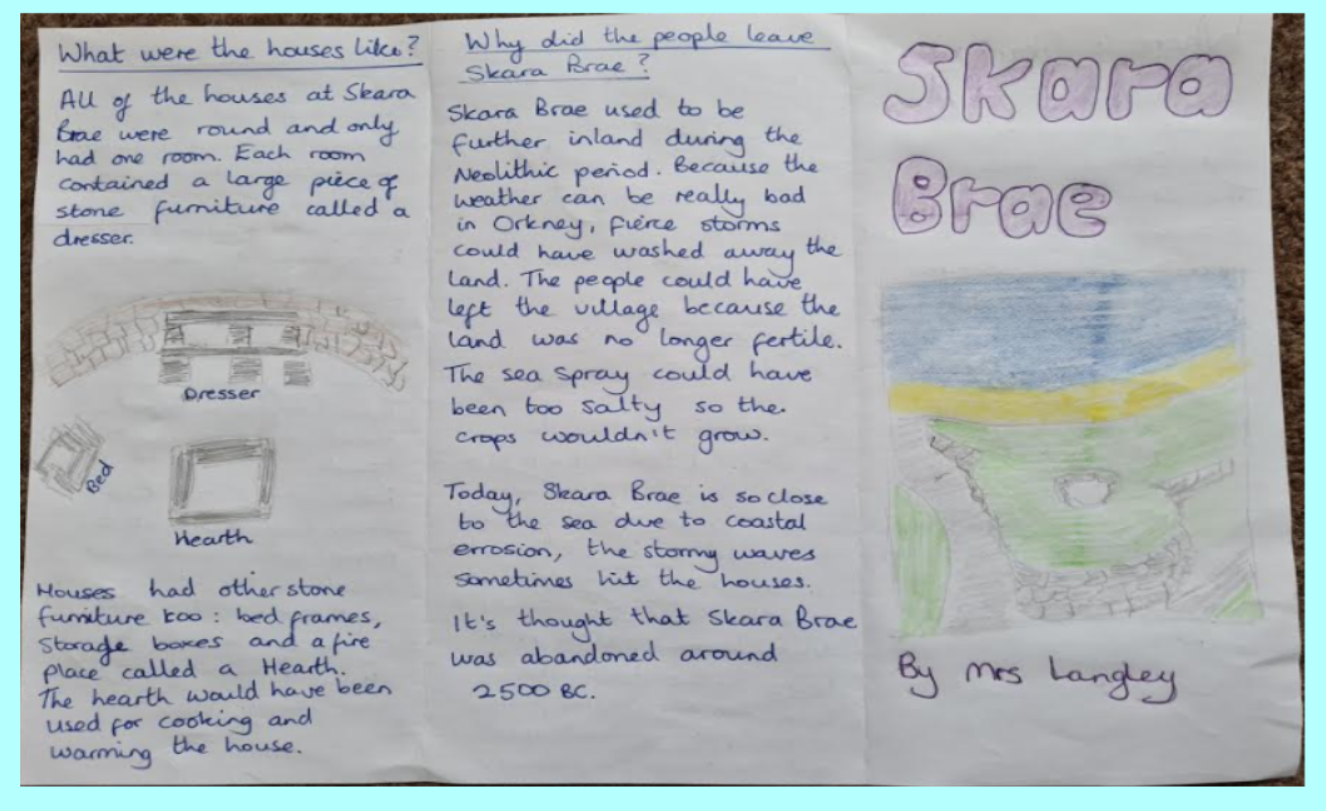 What were the houses like?
All of the houses at Skara
Brae were round and only
had one room. Each room
contained a large piece of
stone furniture called a
dresser.
Dresser
Bed
Hearth
Houses had other stone
furniture too: bed frames,
storage boxes and a fire
place called a Hearth.
The hearth would have been
used for cooking and
warming the house.
Why did the people leave
Skara Brae?
Skara Brae used to be
further inland during the
Neolithic period. Because the
weather can be really bad
in Orkney, fierce storms
could have washed away the
land. The people could have
left the village because the
land was no longer fertile.
The sea spray could have
been too salty so the.
crops wouldn't grow.
Today, Skara Brae is so close
to the sea due to coastal
errosion, the stormy waves
sometimes hit the houses.
It's thought that Skara Brae
was abandoned around
2500 BC.
Skara
Brae
By Mrs Langley